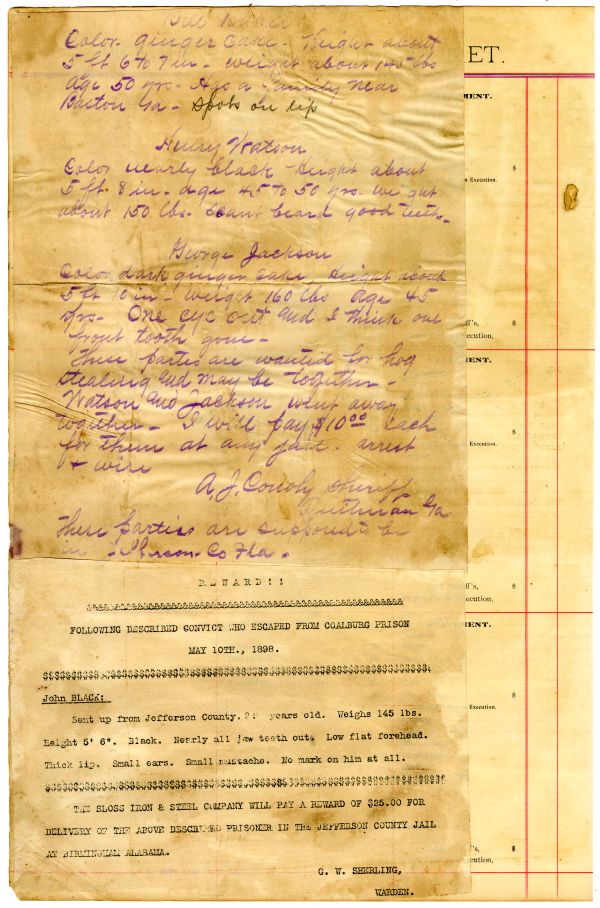 Color ginger cake - Height about
5 ft 6 to 7 in - weight about 145 lbs
age 50 yrs - Has a family near
Baston Ga - spots on lip
Henry Watson
Color nearly black Height about
5 ft. 8 in - age 45 to 50 yrs. weight
about 150 lbs. Scant beard good teeth -
George Jackson
Color dark ginger cake Height about
5 ft 10 in - weight 160 lbs Age 45
yrs - One eye out and I think one
front tooth gone -
These parties are wanted for hog
stealing and may be together -
Watson and Jackson went away
together - I will pay $10 00 each
for them at any jail. arrest
+ wire
A. J. Sheriff
Quitman Ga
These parties are supposed to be
in Co Fla.
REWARD!!
&&&&&&&&&&&&&&&&&&&&&&&&&&&&&&&&&&&&&&&&&&&&&&&&
FOLLOWING DESCRIBED CONVICT WHO ESCAPED FROM COALBURG PRISON
MAY 10TH., 1898.
$$$$$$$$$$$$$$$$$$$$$$$$$$$$$$$$$$$$$$$$$$$$$$$$$$$$$$$$$$
John BLACK:
Sent up from Jefferson County. years old. Weighs 145 lbs.
Height 5' 6". Black. Nearly all jaw teeth out. Low flat forehead.
Thick lip. Small ears. Small mustache. No mark on him at all.
$$$$$$$$$$$$$$$$$$$$$$$$$$$$$$$$$$$$$$$$$$$$$$$$$$$$$$$$$$
THE SLOSS IRON & STEEL COMPANY WILL PAY A REWARD OF $25.00 FOR
DELIVERY OF THE ABOVE DESCRIBED PRISONER IN THE JEFFERSON COUNTY JAIL
AT BIRMINGHAM ALABAMA.
G. W. SHERLING,
WARDEN.
ET.
MENT.
$
n Execution.
ff's,
$
ecution,
MENT.
$
Execution.
ff's,
$
ecution,
MENT.
$
Execution.
ff's,
$
cution,